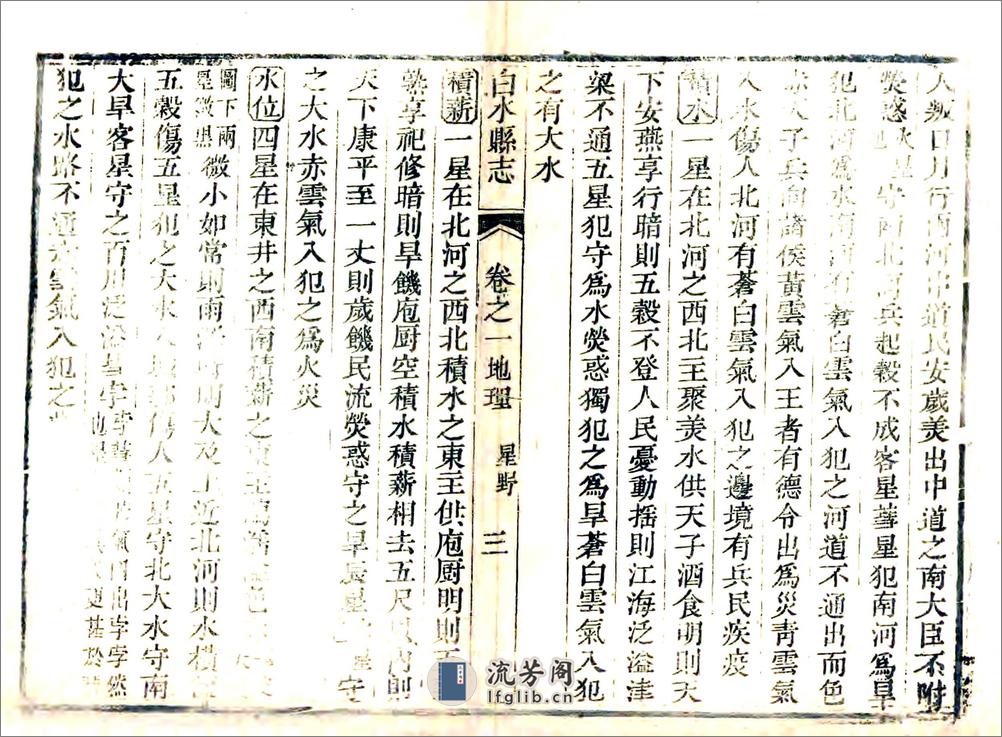 人叛日月行兩河中道民安歲美出中道之南大臣不附
熒惑火星守南北河兵起穀不成客星彗星犯南河為旱
犯北河為水南河有蒼白雲氣入犯之河道不通出而色
赤天子兵向諸侯黃雲氣入王者有德令出為災青雲氣
入水傷人北河有蒼白雲氣入犯之邊境有兵民疾疫
積水一星在北河之西北主聚美水供天子酒食明則天
下安燕享行暗則五穀不登人民憂動揺則江海泛溢津
梁不通五星犯守為水熒惑獨犯之為旱蒼白雲氣入犯
之有大水
白水縣志 卷之一地理 星野 三
積薪一星在北河之西北積水之東主供庖厨明則五
熟享祀修暗則旱饑庖厨空積水積薪相去五尺以內則
天下康平至一丈則歲饑民流熒惑守之旱辰星 守
之大水赤雲氣入犯之為火災
水位四星在東井之西南積薪之東
圖下兩星微黑微小如常則雨 明大及 近北河則水橫
五穀傷五星犯之大水入 傷人五星守北大水守南
大旱客星守之百川泛溢 孛 氣 出孛孛然 夏甚於
犯之水路不通赤雲氣入犯之
流芳阁
lfglib.cn